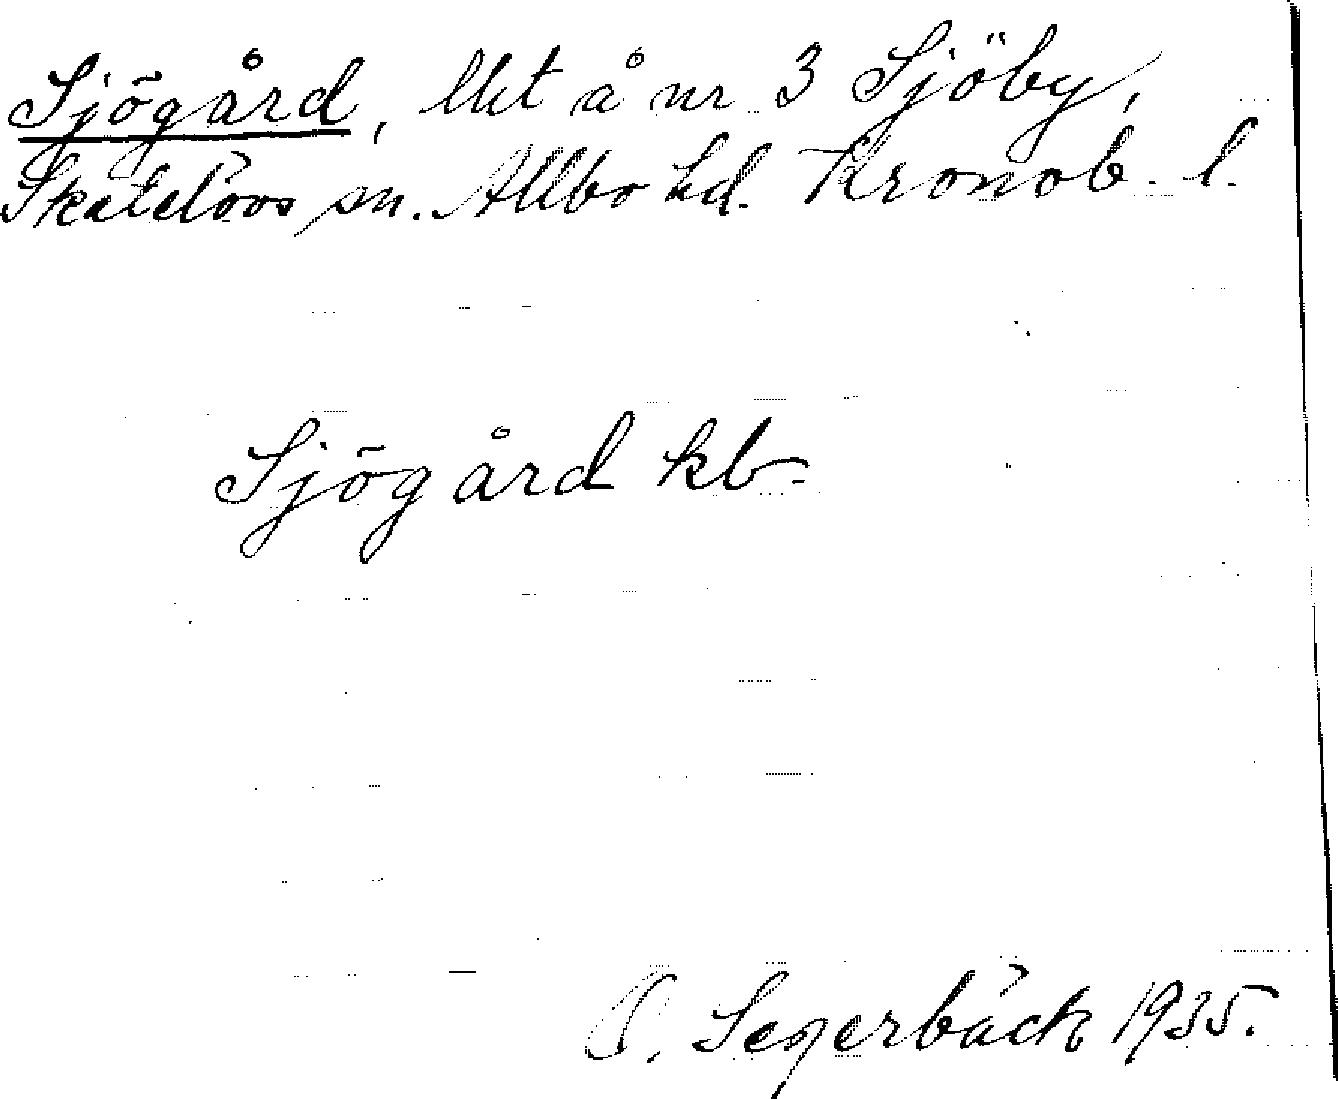 Sjögård, lht å nr 3 Sjöby,
Skatelövs sn. Allbo hd. Kronob. l.
Sjögård kb.
O. Segerbäck 1935.